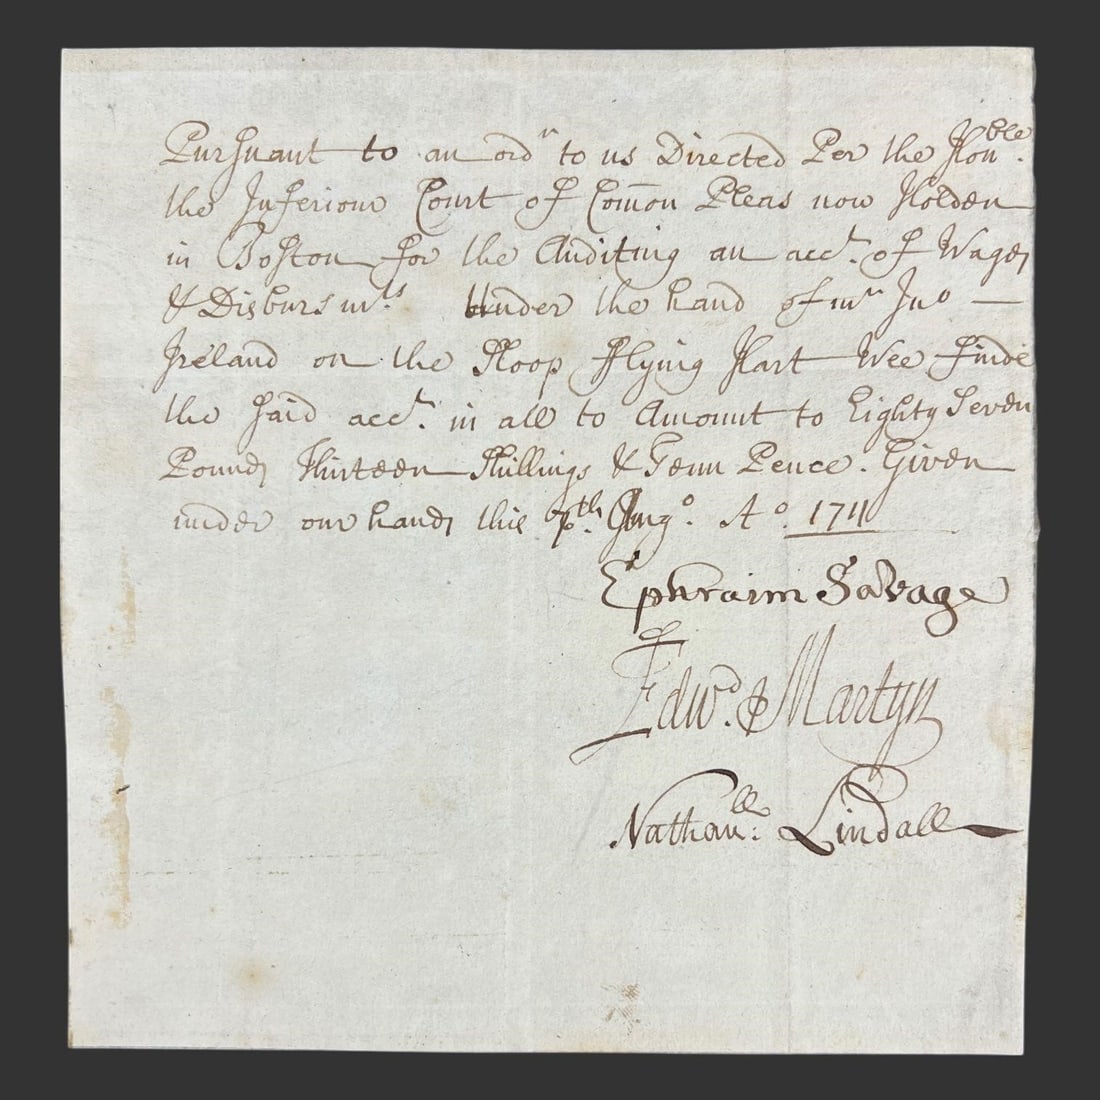 Pursuant to an ordr to us Directed Per the Honble.
the Inferiour Court of Com̄on Pleas now Holden
in Boston for the Auditing an acct. of Wages
& Disbursmts. Under the hand of mr Jno —
Ireland on the Sloop Flying Hart Wee finde
the said acct. in all to Amount to Eighty Seven
Pounds Thirteen Shillings & Tenn Pence. Given
under our hands this th. Augo. Ao. 1711
Ephraim Savage
Edwd. Martyn
Nathanll: Lindall